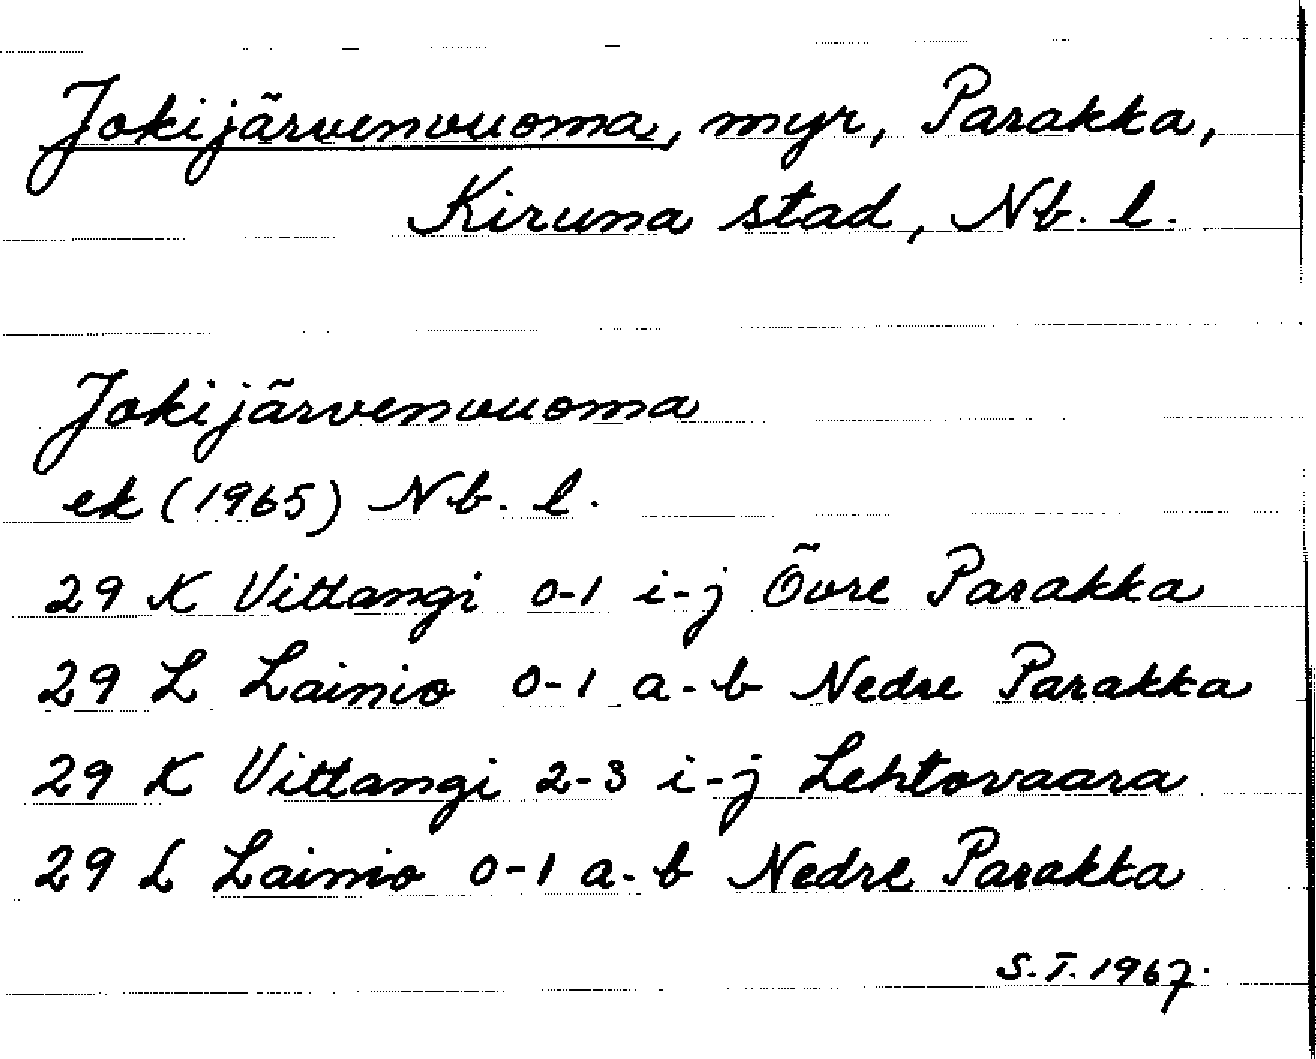 Jokijärvenvuoma, myr, Parakka,
Kiruna stad, Nb. l.
Jokijärvenvuoma
ek (1965) Nb. l.
29 K Vittangi 0-1 i-j Övre Parakka
29 L Lainio 0-1 a-b Nedre Parakka
29 K Vittangi 2-3 i-j Lehtovaara
29 L Lainio 0-1 a-b Nedre Parakka
S.T. 1967.